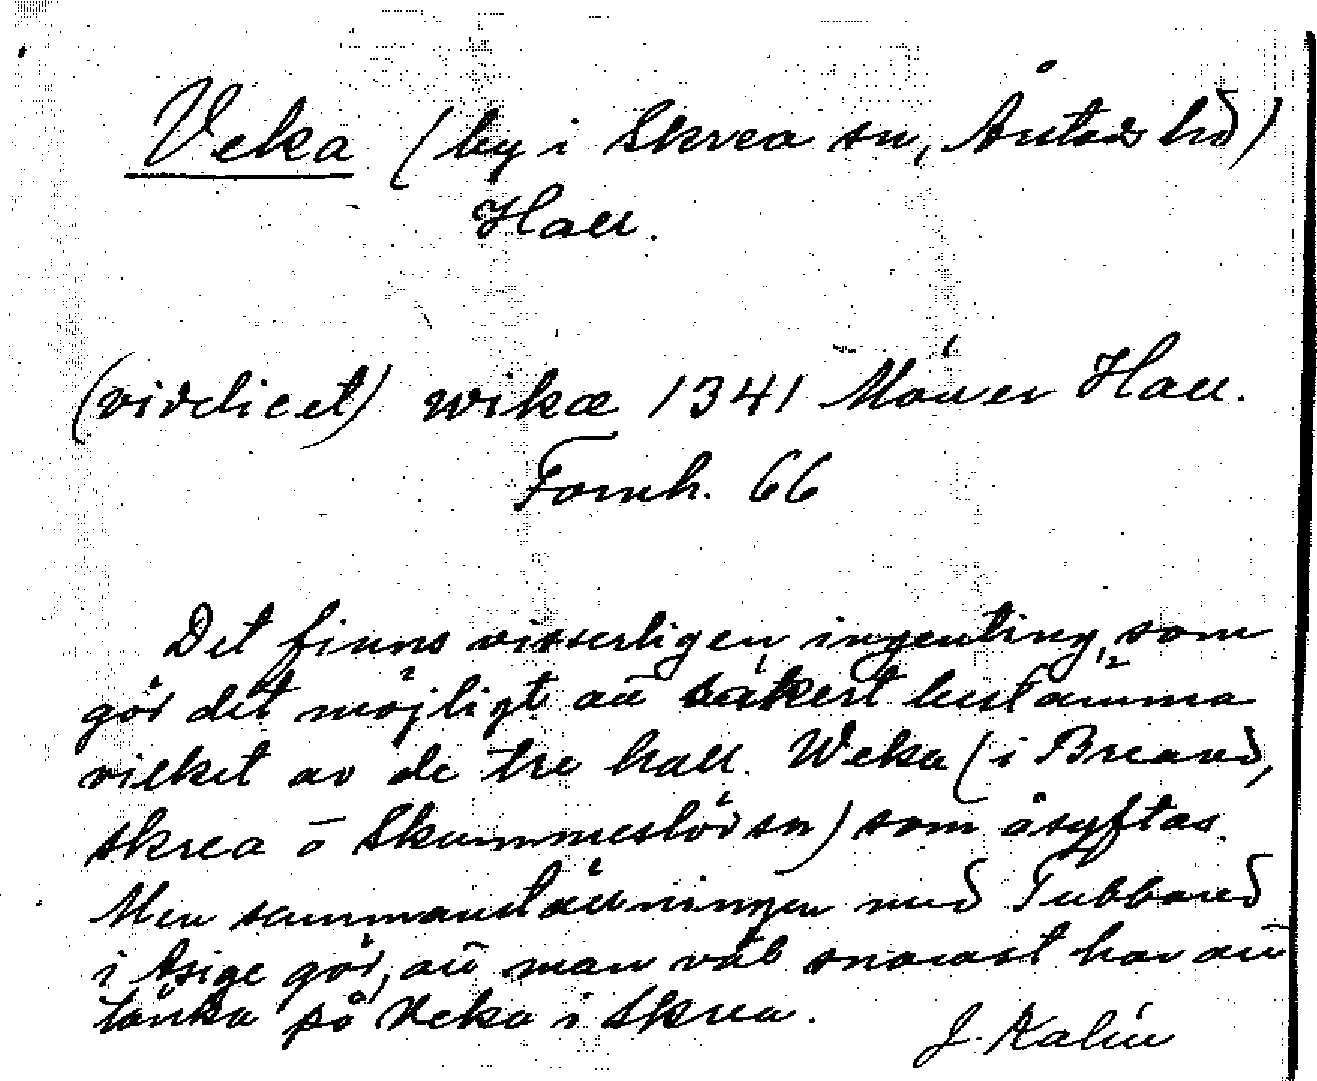 Veka (by i Skrea sn, Årstads hd)
Hall.
(videlicet) wikæ 1341 Möller Hall.
Fornh. 66
Det finns visserligen ingenting, som
gör det möjligt att säkert bestämma
vilket av de tre hall. Weka (i Breared,
Skrea o Skummeslöv sn) som åsyftas.
Men sammanställningen med Tubbared
i Asige gör, att man väl snarast har att
tänka på Veka i Skrea.
J. Kalén